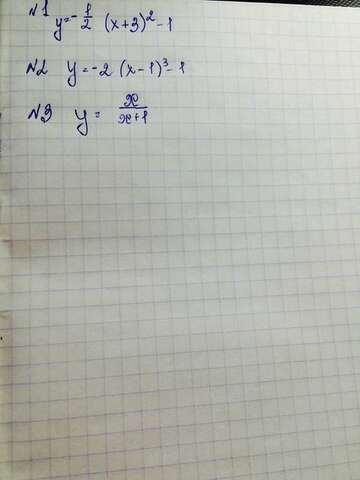 №1 y = -1/2 (x+3)² - 1
№2 y = -2 (x-1)³ - 1
№3 y = x/(x+1)